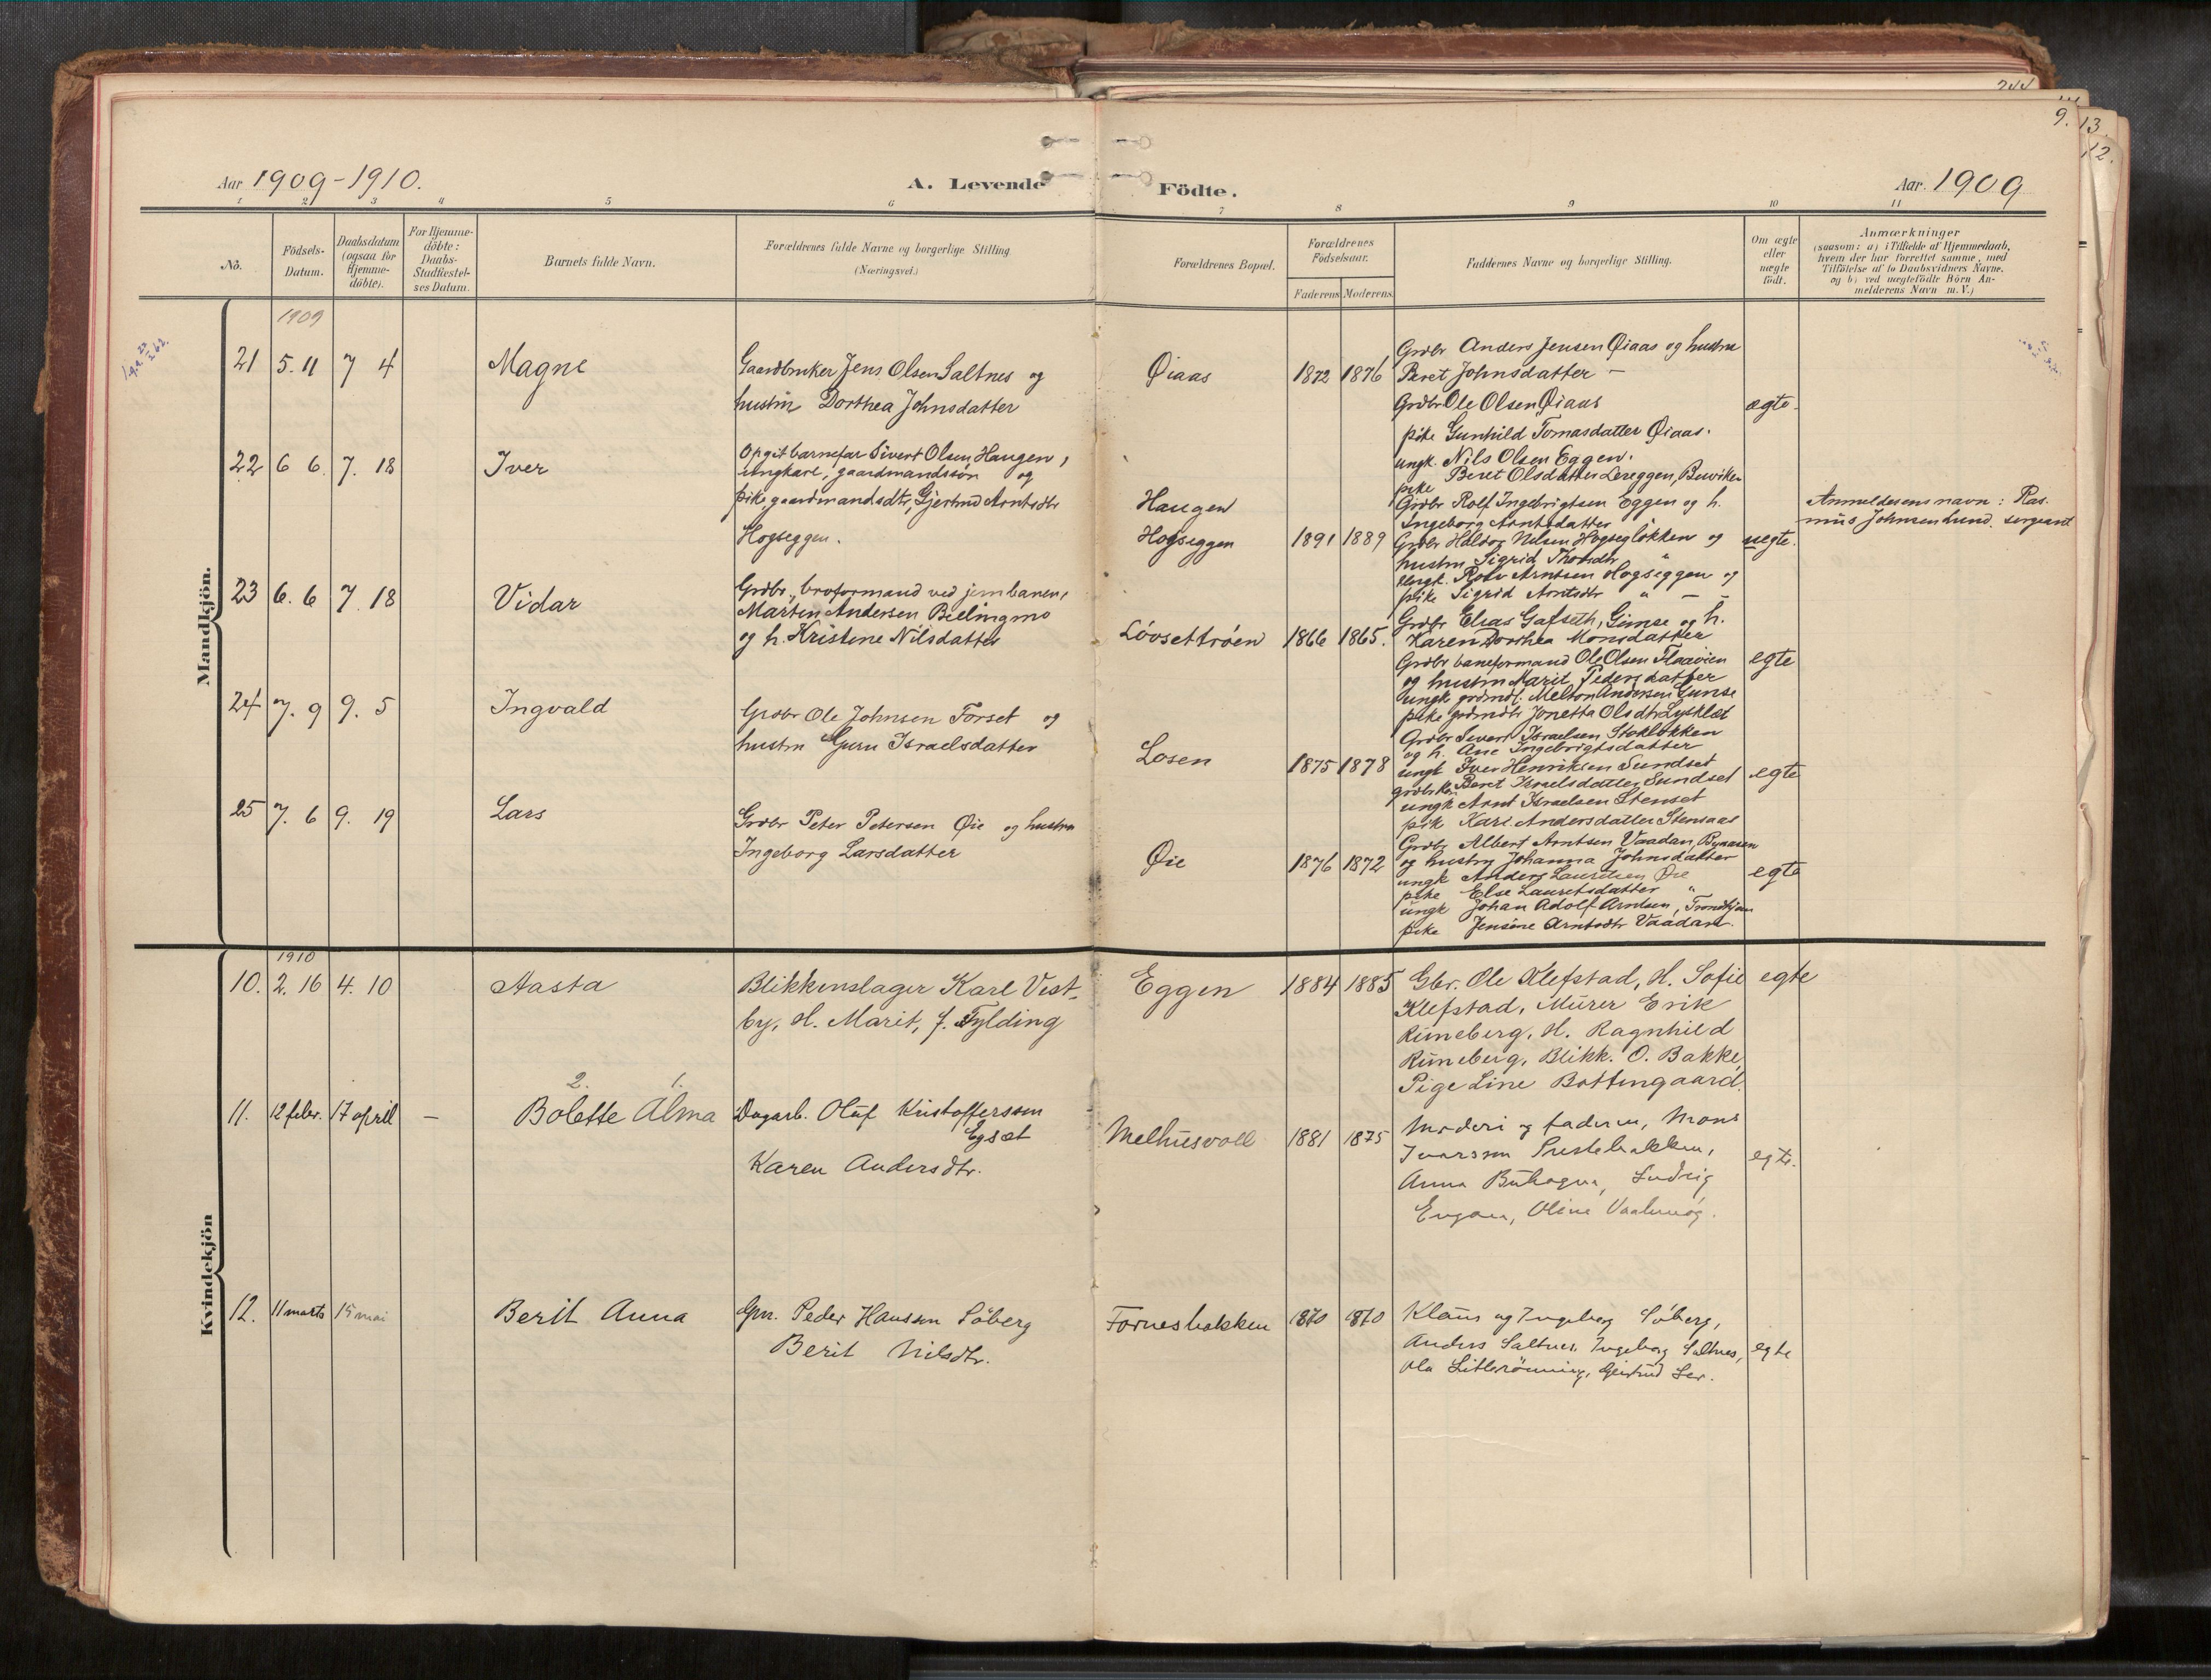 9.
13.
12.
Aar 1909-1910.
A. Levende Födte.
Aar. 1909
1 2 3 4 5 6 7 8 9 10 11
No.
Födsels-
Datum.
Daabsdatum
(ogsaa for
Hjemme-
döbte).
For Hjemme-
döbte:
Daabs-
Stadfæstel-
ses Datum.
Barnets fulde Navn.
Forældrenes fulde Navne og borgerlige Stilling
(Næringsvei.)
Forældrenes Bopæl.
Forældrenes
Födselsaar.
Faderens. Moderens.
Faddernes Navne og borgerlige Stilling.
Om ægte
eller
uægte
födt.
Anmærkninger
(saasom: a) i Tilfælde af Hjemmedaab,
hvem der har forrettet samme, med
Tilföielse af to Daabsvidners Navne.
og b) ved uægtefödte Börn An-
melderens Navn m. V.)
Mandkjön.
1909
21 5. 11 7 4 Magne
Gaardbruker Jens Olsen Saltnes og
hustru Dorthea Johnsdatter
Øiaas 1872 1876
Grdbr Anders Jensen Øiaas og hustru
Beret Johnsdatter –
Grdbr Ole Olsen Øiaas
pike Gunhild Tomasdatter Øiaas.
ungk. Nils Olsen Eggen.
pike Beret Olsdatter Lereggen, Buviken
ægte.
22 6 6. 7. 18 Iver
Opgit barnefar Sivert Olsen Haugen,
ungkarl, gaardmandssøn og
pike, gaardmandsdtr, Gjertrud Arntsdtr
Hogseggen.
Haugen
Hogseggen 1891 1889
Grdbr Rolf Ingebrigtsen Eggen og h.
Ingeborg Arntsdatter
Grdbr Haldor Nilsen Hogsegløkken og
hustru Sigrid "
Ungk. Rolv Arntsen Hogseggen og
pike Sigrid Arntsdtr " –
uegte.
Anmelderens navn: Ras-
mus Johnsen Lund. sergeant
23 6. 6 7. 18 Vidar
Grdbr., broformand ved jernbanen,
Martin Andersen Bielingmo
og h. Kristine Nilsdatter
Løvsettrøen 1866 1865.
Grdbr Elias Gafseth, Gimse og h.
Karen Dorthea Monsdatter
Grdbr baneformand Ole Olsen Flaaøien
og hustru Marit Pedersdatter
ungk. Andersen Gimse
pike Jonetta Olsdtr Lysklæt
egte
24 7. 9 9. 5 Ingvald
Grdbr Ole Johnsen Forset og
hustru Guru Israelsdatter
Losen 1875 1878
Grdbr Sivert Israelsen Stokløkken
og h. Ane Ingebrigtsdatter
ungk Iver Henriksen Sundset
Beret Israelsdatter Sundset
ungk Arnt Israelsen Stenset
pik Kari Andersdatter Stensaas
egte
25 7. 6 9. 19 Lars
Grdbr Peter Petersen Øie og hustru
Ingeborg Larsdatter
Øie 1876 1872
Grdbr Albert Arntsen Vaadan, Bynæsen
og hustru Johanna Johnsdatter
ungk Anders Lauritsen Øie
pike Else Lauritsdatter "
ungk Johan Adolf Arntsen, Trondhjem
pike Jensine Arntsdtr Vaadan.
egte
Kvindekjön
1910
10. 2. 16 4. 10 Aasta
Blikkenslager Karl Vest-
by, H. Marit, f. Fylding
Eggen 1884 1885
Gbr. Ole Klefstad, H. Sofie
Klefstad, Murer Erik
Runeberg, H. Ragnhild
Runeberg, Blikk. O. Bakke,
Pige Line Bottengaard.
egte
2. 1.
11. 12 febr. 17 april – Bolette Alma
Dagarb. Oluf Kristofferssøn
Egset
Karen Andersdtr.
Melhusvold 1881 1875
Moderen og faderen, Mons
Ivarsson Prestebakken,
Anna Ludvig
Engan, Oline
egte.
12. 11 marts 15 mai Berit Anna
Gm. Peder Hanssøn Söberg
Berit Nilsdtr.
Fornesbakken 1870 1870
Klaus og Ingeborg Söberg,
Anders Saltnes, Ingeborg Saltnes,
Ola Litlerönning, Gjertrud Ler.
egte